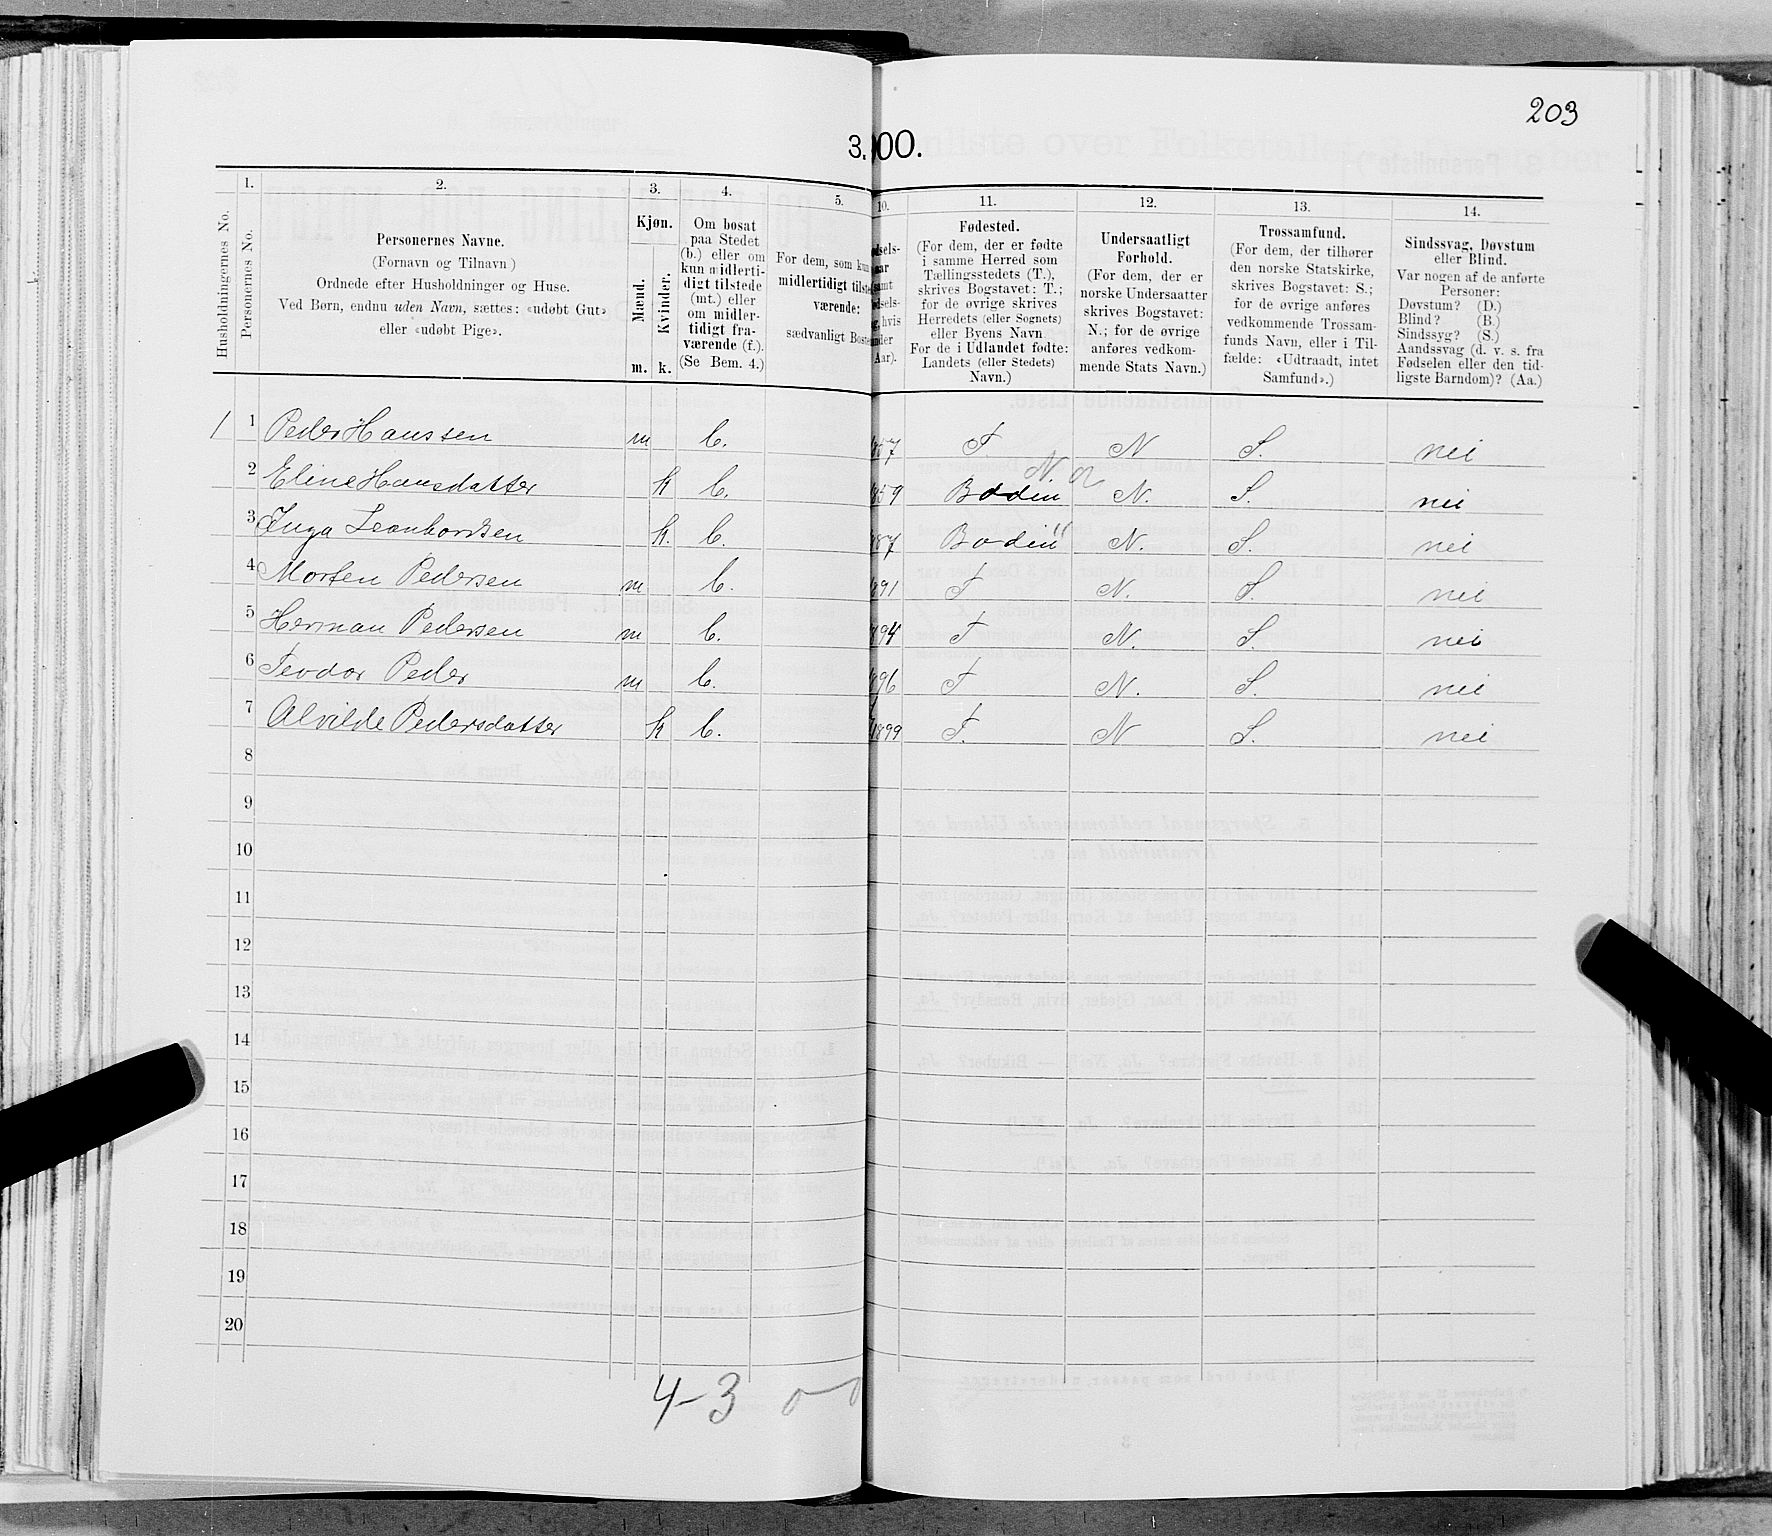 203
3. 00.
1. 2. 3. 4. 5. 10. 11. 12. 13. 14.
Husholdningernes No.
Personernes No.
Personernes Navne.
(Fornavn og Tilnavn)
Ordnede efter Husholdninger og Huse.
Ved Børn, endnu uden Navn, sættes: «udøbt Gut»
eller «udøbt Pige».
Kjøn.
Mænd.
Kvinder.
m. k.
Om bosat
paa Stedet
(b.) eller om
kun midlerti-
digt tilstede
(mt.) eller
om midler-
tidigt fra-
værende (f.).
(Se Bem. 4.)
For dem, som kun
midlertidigt tilste
værende:
sædvanligt Boste
ødsels-
aar
samt
ødsels-
ag, hvis
under
Aar).
Fødested.
(For dem, der er fødte
i samme Herred som
Tællingsstedets (T.),
skrives Bogstavet: T.;
for de øvrige skrives
Herredets (eller Sognets)
eller Byens Navn
For de i Udlandet fødte:
Landets (eller Stedets)
Navn.)
Undersaatligt
Forhold.
(For dem, der er
norske Undersaatter
skrives Bogstavet:
N.; for de øvrige
anføres vedkom-
mende Stats Navn.)
Trossamfund.
(For dem, der tilhører
den norske Statskirke,
skrives Bogstavet: S.;
for de øvrige anføres
vedkommende Trossam-
funds Navn, eller i Til-
fælde: «Udtraadt, intet
Samfund».)
Sindssvag, Døvstum
eller Blind.
Var nogen af de anførte
Personer:
Døvstum? (D.)
Blind? (B.)
Sindssyg? (S.)
Aandssvag (d. v. s. fra
Fødselen eller den tid-
ligste Barndom)? (Aa.)
1 1 Peder Hanssen m b. 857 T N S. nei
2 Eline Hansdatter k b. 859 Bodin N. S. nei
3 Inga Leonhardsen k. b. 887 Bodin N. S. nei
4 Morten Pedersen m b. 891 T N. S. nei
5 Herman Pedersen m b. 894 T N. S. nei
6 Teodor Peder m b. 896 T N. S. nei
7 Alvilde Pedersdatter k b. 1899 T. N S. nei
8
9
10
11
12
13
14
15
16
17
18
19
20
4-3 0-0